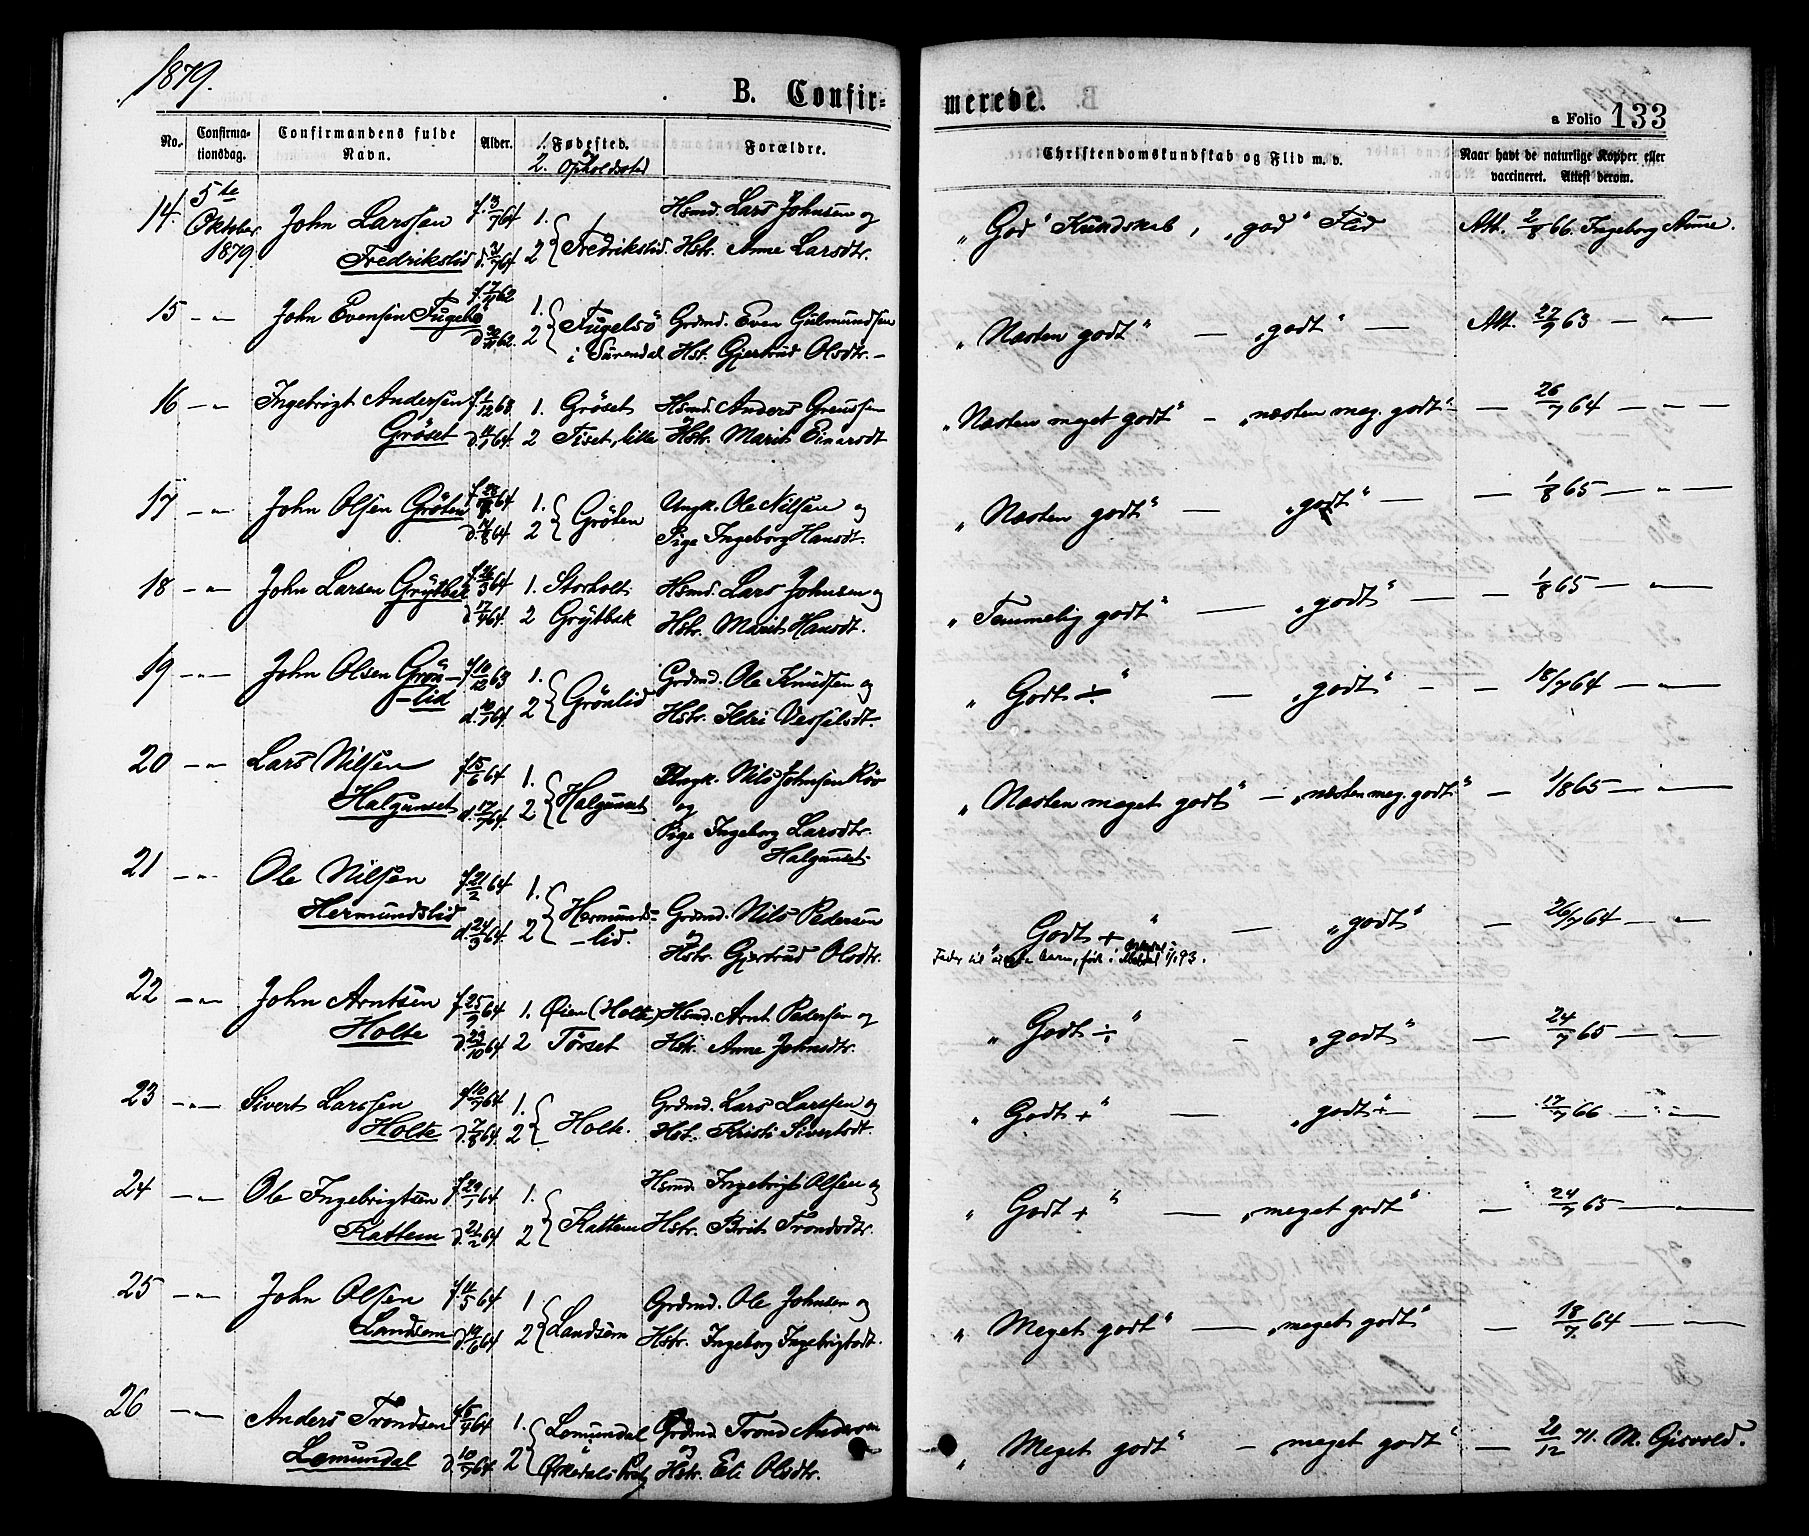 1879.
B. Confir-
merede.
a Folio 133
No.
Confirma-
tionsdag.
Confirmandens fulde
Navn.
Alder.
1. Fødested.
2. Opholdssted
Forældre.
Christendomskundskab og Flid m. v.
Naar havt de naturlige Kopper eller
vaccineret. Attest derom.
14. 5te Oktober 1879. John Larssen f. 3/7 64 1. Hsmd. Lars Johnsen og „God“ Kundskab, „god“ Flid Att. 2/8 66. Ingeborg Aune.
Fredrikslid d. 64 2 Fredrikslid. Hstr. Anne Larsdtr.
15 -„- John Evensen Fugelsö 62 1. Fugelsö Grdmd. Even Gulmundsen „Næsten godt“ — „godt“ — Att. 27/9 63 — „ —
62. 2 i Surendal Hst. Gjertrud Olsdtr. -
16 -„- Ingebrigt Andersen f. 1/12 63 1. Gröset Hsmd. Anders „Næsten meget godt“ - „næsten meg. godt“ — 26/7 64 — „ —
Gröset d. 64. 2 Fiset, lille Hstr. Marit Einarsdt
17 -„- John Olsen Gröten 64 1. Gröten Ungk. Ole Nilsen og „Næsten godt“ — „godt“ — — 1/8 65 — „ —
d. 14/8 64. 2 Pige Ingeborg Hansdt.
18 -„- John Larsen Grytbak f. 26/3 64 1. Storholt Hsmd. Lars Johnsen og „Temmelig godt“ — „godt“ — — 1/8 65 — „ —
d. 17/4 64. 2 Grytbak Hstr. Marit Hansdt.
19 -„- John Olsen Grön- f. 10/12 63 1. Grönlid Grdmd. Ole Knudsen og „Godt ÷“ — „godt“ - — 18/7 64 — „ —
-lid d. 10/1 64. 2 Hstr. Ildri
20 -„- Lars Nilsen f. 15/6 64 1. Halgunset Ungk. Nils Johnsen Röv „Næsten meget godt“ — „næsten meg. godt“ — 1/8 65 — „ —
Halgunset d. 17/7 64. 2 og
Pige Ingeborg Larsdtr.
Halgunset.
21 -„- Ole Nilsen f. 21/2 64 1. Hermunds-
Hermundslid d. 24/3 64. 2 -lid. Grdmd. Nils Pedersen „Godt +“ — „godt“ — 26/7 64 — „ —
og
Hstr. Gjertrud Olsdtr. Fader til barn, født i 93.
22 -„- John Arntsen f. 25/9 64 1. Øien (Holte) Hsmd. Arnt Pedersen og „Godt ÷“ - „godt“ — 24/7 65 — „ —
Holte d. 23/10 64 2 Törset Hstr. Anne Johnsdtr.
23 -„- Sivert Larssen f. 10/7 64 1. Holte. Grdmd. Lars Larssen og „Godt +“ — „godt+“ — 17/7 66 — „ —
Holte d. 7/8 64. 2 Hst. Kristi Sivertsdt.
24 -„- Ole Ingebrigtsen f. 29/1 64 1. Kattem Hsmd. Ingebrigt Olsen og „Godt +“ — „meget godt“ - 24/7 65 — „ —
Kattem d. 21/2 64. 2 Hstr. Brit Trondsdtr.
25 -„- John Olsen f. 11/5 64 1 Landsem Grdmd. Ole Johnsen og „Meget godt“ — „meget godt“ — 18/7. 64 — „ —
Landsem d. 19/6 64 2 Hstr. Ingeborg Ingebrigtsdt.
26 -„- Anders Trondsen f. 6/4 64 1. Lomundal Grdmd Trond Andersen „Meget godt“ - meget godt“ — 20/12 71. M. Gisvold.
Lomundal d. 10/7 64 2 Ørkedals Hstr. Eli Olsdtr.